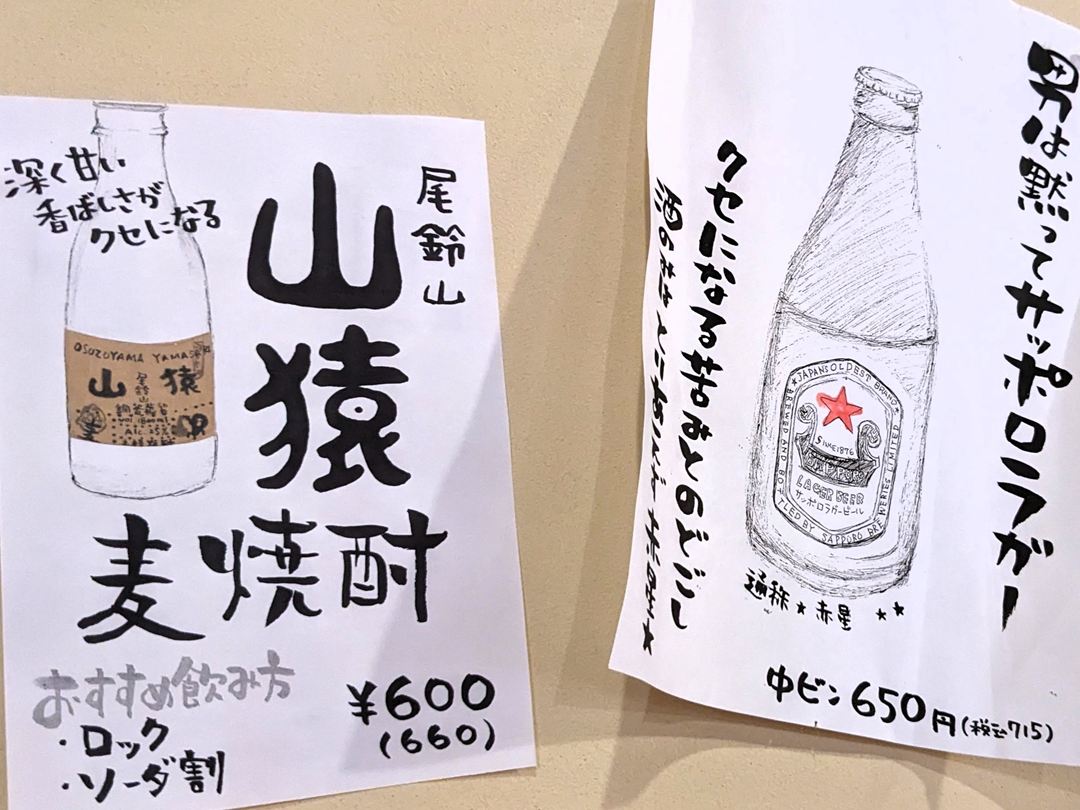 深く甘い
香ばしさが
クセになる
尾鈴山
山猿
麦焼酎
OSUZUYAMA YAMA
山猿
尾鈴山
おすすめ飲み方
・ロック
・ソーダ割
¥600
(660)
男は黙ってサッポロラガー
クセになる苦みとのどごし
★JAPANS OLDEST BRAND★
BREWED AND BOTTLED BY SAPPORO BREWERIES LIMITED
SINCE 1876
LAGER BEER
サッポロラガービール
通称★赤星 ★★
中ビン 650円(税込715)